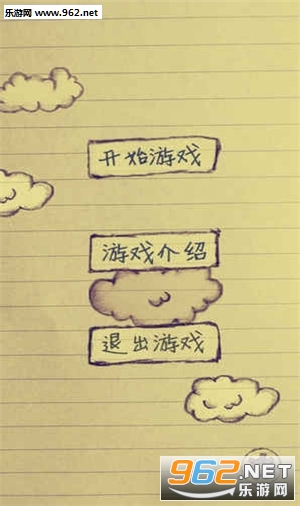 乐游网 www.962.net
开始游戏
游戏介绍
退出游戏
962.NET
乐游网